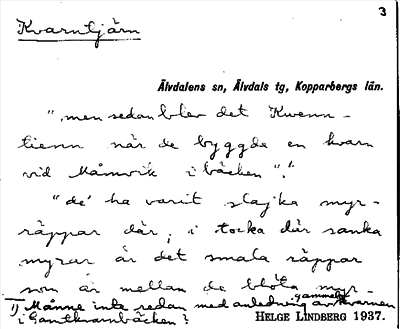 3
Kvarntjärn
Älvdalens sn, Älvdals tg, Kopparbergs län.
"men sedan blev det Kvenn-
tienn när de byggde en kvarn
vid Månvik i bäcken"."
"de' ha varit slajka myr-
räppar där, i tocka där sanka
myrar är det smala räppar
som är mellan de blöta myr-
1) Månne inte redan med anledning av kvarnen
gammelt
i Gamtkvarnbäcken?
HELGE LINDBERG 1937.